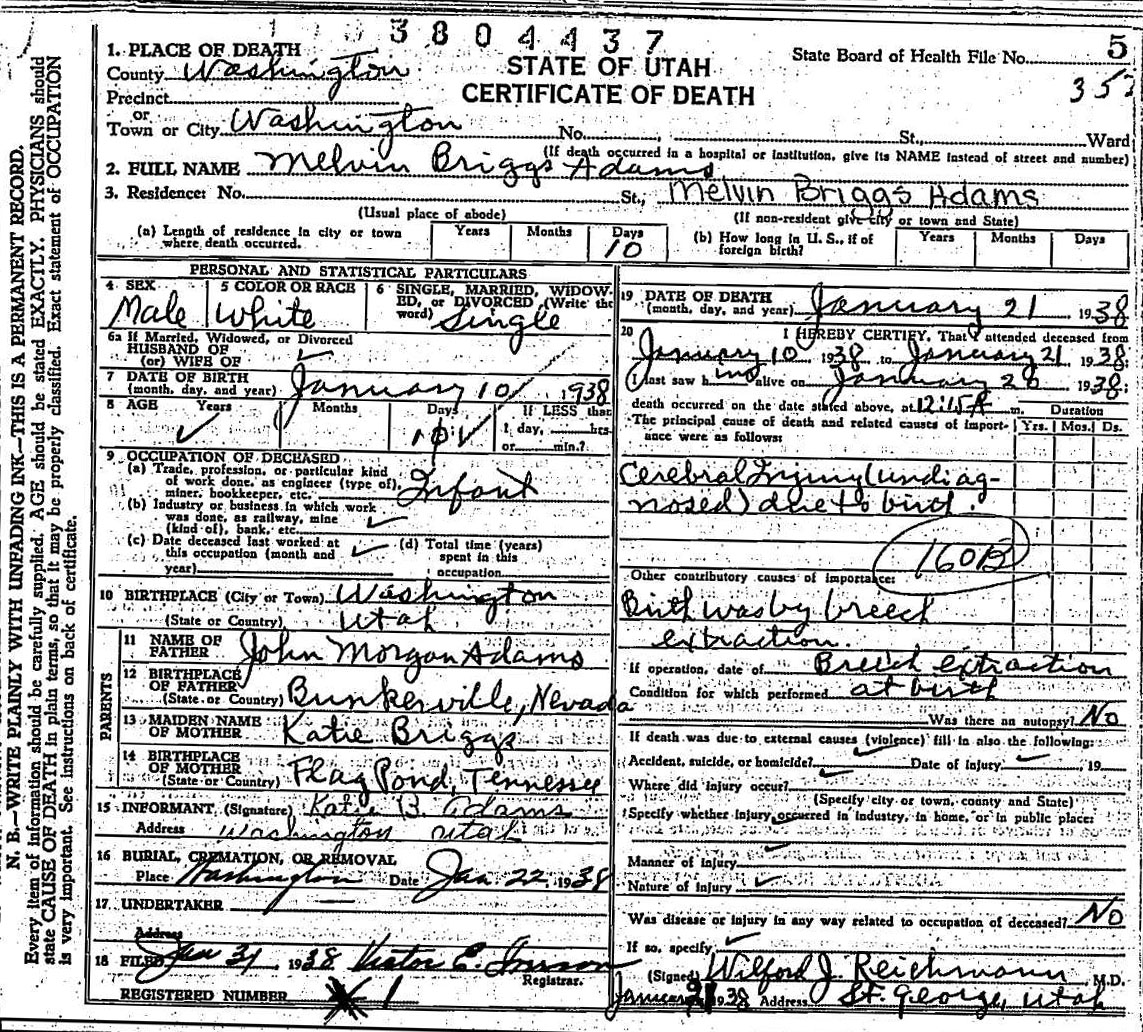 3804437
5
352
State Board of Health File No.
STATE OF UTAH
CERTIFICATE OF DEATH
1. PLACE OF DEATH
County Washington
Precinct
or
Town or City Washington No. St., Ward
(If death occurred in a hospital or institution, give its NAME instead of street and number)
2. FULL NAME Melvin Briggs Adams
3. Residence: No. St., Melvin Briggs Adams
(Usual place of abode) (If non-resident give city or town and State)
(a) Length of residence in city or town where death occurred. Years Months Days 10
(b) How long in U. S., if of foreign birth? Years Months Days
PERSONAL AND STATISTICAL PARTICULARS
4 SEX Male
5 COLOR OR RACE White
6 SINGLE, MARRIED, WIDOW-
ED, or DIVORCED (Write the
word) Single
6a If Married, Widowed, or Divorced
HUSBAND OF
(or) WIFE OF
7 DATE OF BIRTH
(month, day, and year) January 10 1938
8 AGE Years Months Days If LESS than
1 day, hrs.
or min.?
9 OCCUPATION OF DECEASED
(a) Trade, profession, or particular kind
of work done, as engineer (type of),
miner, bookkeeper, etc. Infant
(b) Industry or business in which work
was done, as railway, mine
(kind of), bank, etc.
(c) Date deceased last worked at
this occupation (month and
year)
(d) Total time (years)
spent in this
occupation
10 BIRTHPLACE (City or Town) Washington
(State or Country) Utah
PARENTS
11 NAME OF
FATHER John Morgan Adams
12 BIRTHPLACE
OF FATHER
(State or Country) Bunkerville, Nevada
13 MAIDEN NAME
OF MOTHER Katie Briggs
14 BIRTHPLACE
OF MOTHER
(State or Country) Flag Pond, Tennessee
15 INFORMANT (Signature) Katie B. Adams
Address Washington Utah
16 BURIAL, CREMATION, OR REMOVAL
Place Washington Date Jan. 22, 1938
17 UNDERTAKER
Address
18 FILED Jan 31 1938 Victor E.
Registrar.
REGISTERED NUMBER 1
19 DATE OF DEATH
(month, day, and year) January 21 1938
20 I HEREBY CERTIFY, That I attended deceased from
January 10 1938 to January 21 1938:
I last saw him alive on January 20 1938:
death occurred on the date stated above, at 12:15 A m. Duration
The principal cause of death and related causes of import-
ance were as follows: Yrs. Mos. Ds.
Cerebral Injury (undiag-
nosed) due to birth.
160B
Other contributory causes of importance:
Birth was by breech
extraction.
If operation, date of Breech extraction
Condition for which performed at birth
Was there an autopsy? No
If death was due to external causes (violence) fill in also the following:
Accident, suicide, or homicide? Date of injury 19
Where did injury occur?
(Specify city or town, county and State)
Specify whether injury occurred in industry, in home, or in public place:
Manner of injury
Nature of injury
Was disease or injury in any way related to occupation of deceased? No
If so, specify
(Signed) Wilford J. Reichmann M.D.
January 1938 Address St. George, Utah
N. B.—WRITE PLAINLY WITH UNFADING INK—THIS IS A PERMANENT RECORD.
Every item of information should be carefully supplied. AGE should be stated EXACTLY. PHYSICIANS should
state CAUSE OF DEATH in plain terms, so that it may be properly classified. Exact statement of OCCUPATION
is very important. See instructions on back of certificate.